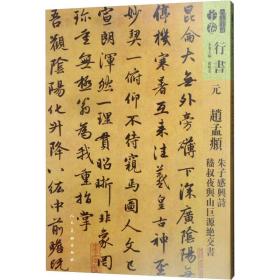 行書
元
趙孟頫
朱子感興詩
嵇叔夜與山巨源絕交書
昆侖大無外旁礴下深廣陰陽無
停機寒暑互來往羲皇古神聖
妙契一俯仰不待窺馬圖人文已
宣朗渾然一理貫昭晰非象罔
珍重無極翁為我重指掌
吾觀陰陽化升降八紘中前瞻既